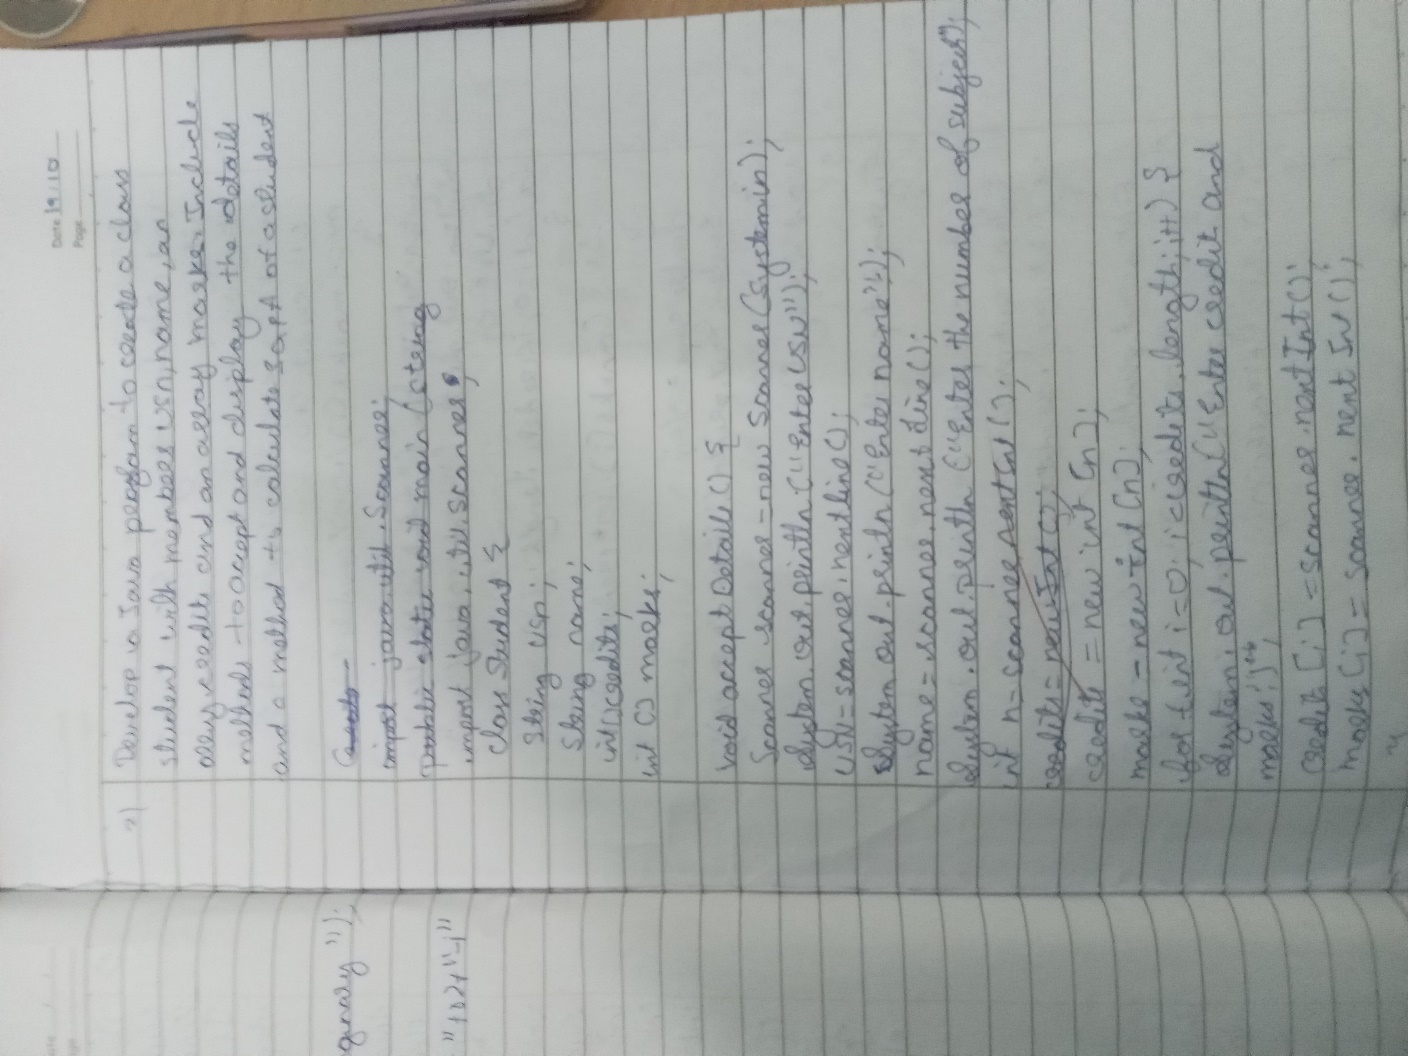 Date 19/10
Page
2) Develop a Java program to create a class
student with members usn, name, an
array credits and an array marks. Include
methods to accept and display the details
and a method to calculate SGPA of a student
import java.util.Scanner;
public static void main (String
import java.util.Scanner;
class Student {
String usn;
String name;
int[] credits;
int [] marks;
void accept Details () {
Scanner scanner = new Scanner(System.in);
System.out.println ("Enter USN");
usn = scanner.nextline();
System.out.println ("Enter name");
name = scanner.next Line();
System.out.println ("Enter the number of subject");
int n = scanner.nextInt ();
credits = new int [n];
marks = new int [n];
for (int i = 0; i<credits.length; i++) {
System.out.println ("Enter credit and
marks");
credit [i] = scanner.nextInt();
marks [i] = scanner.next Int();
}
gnary");